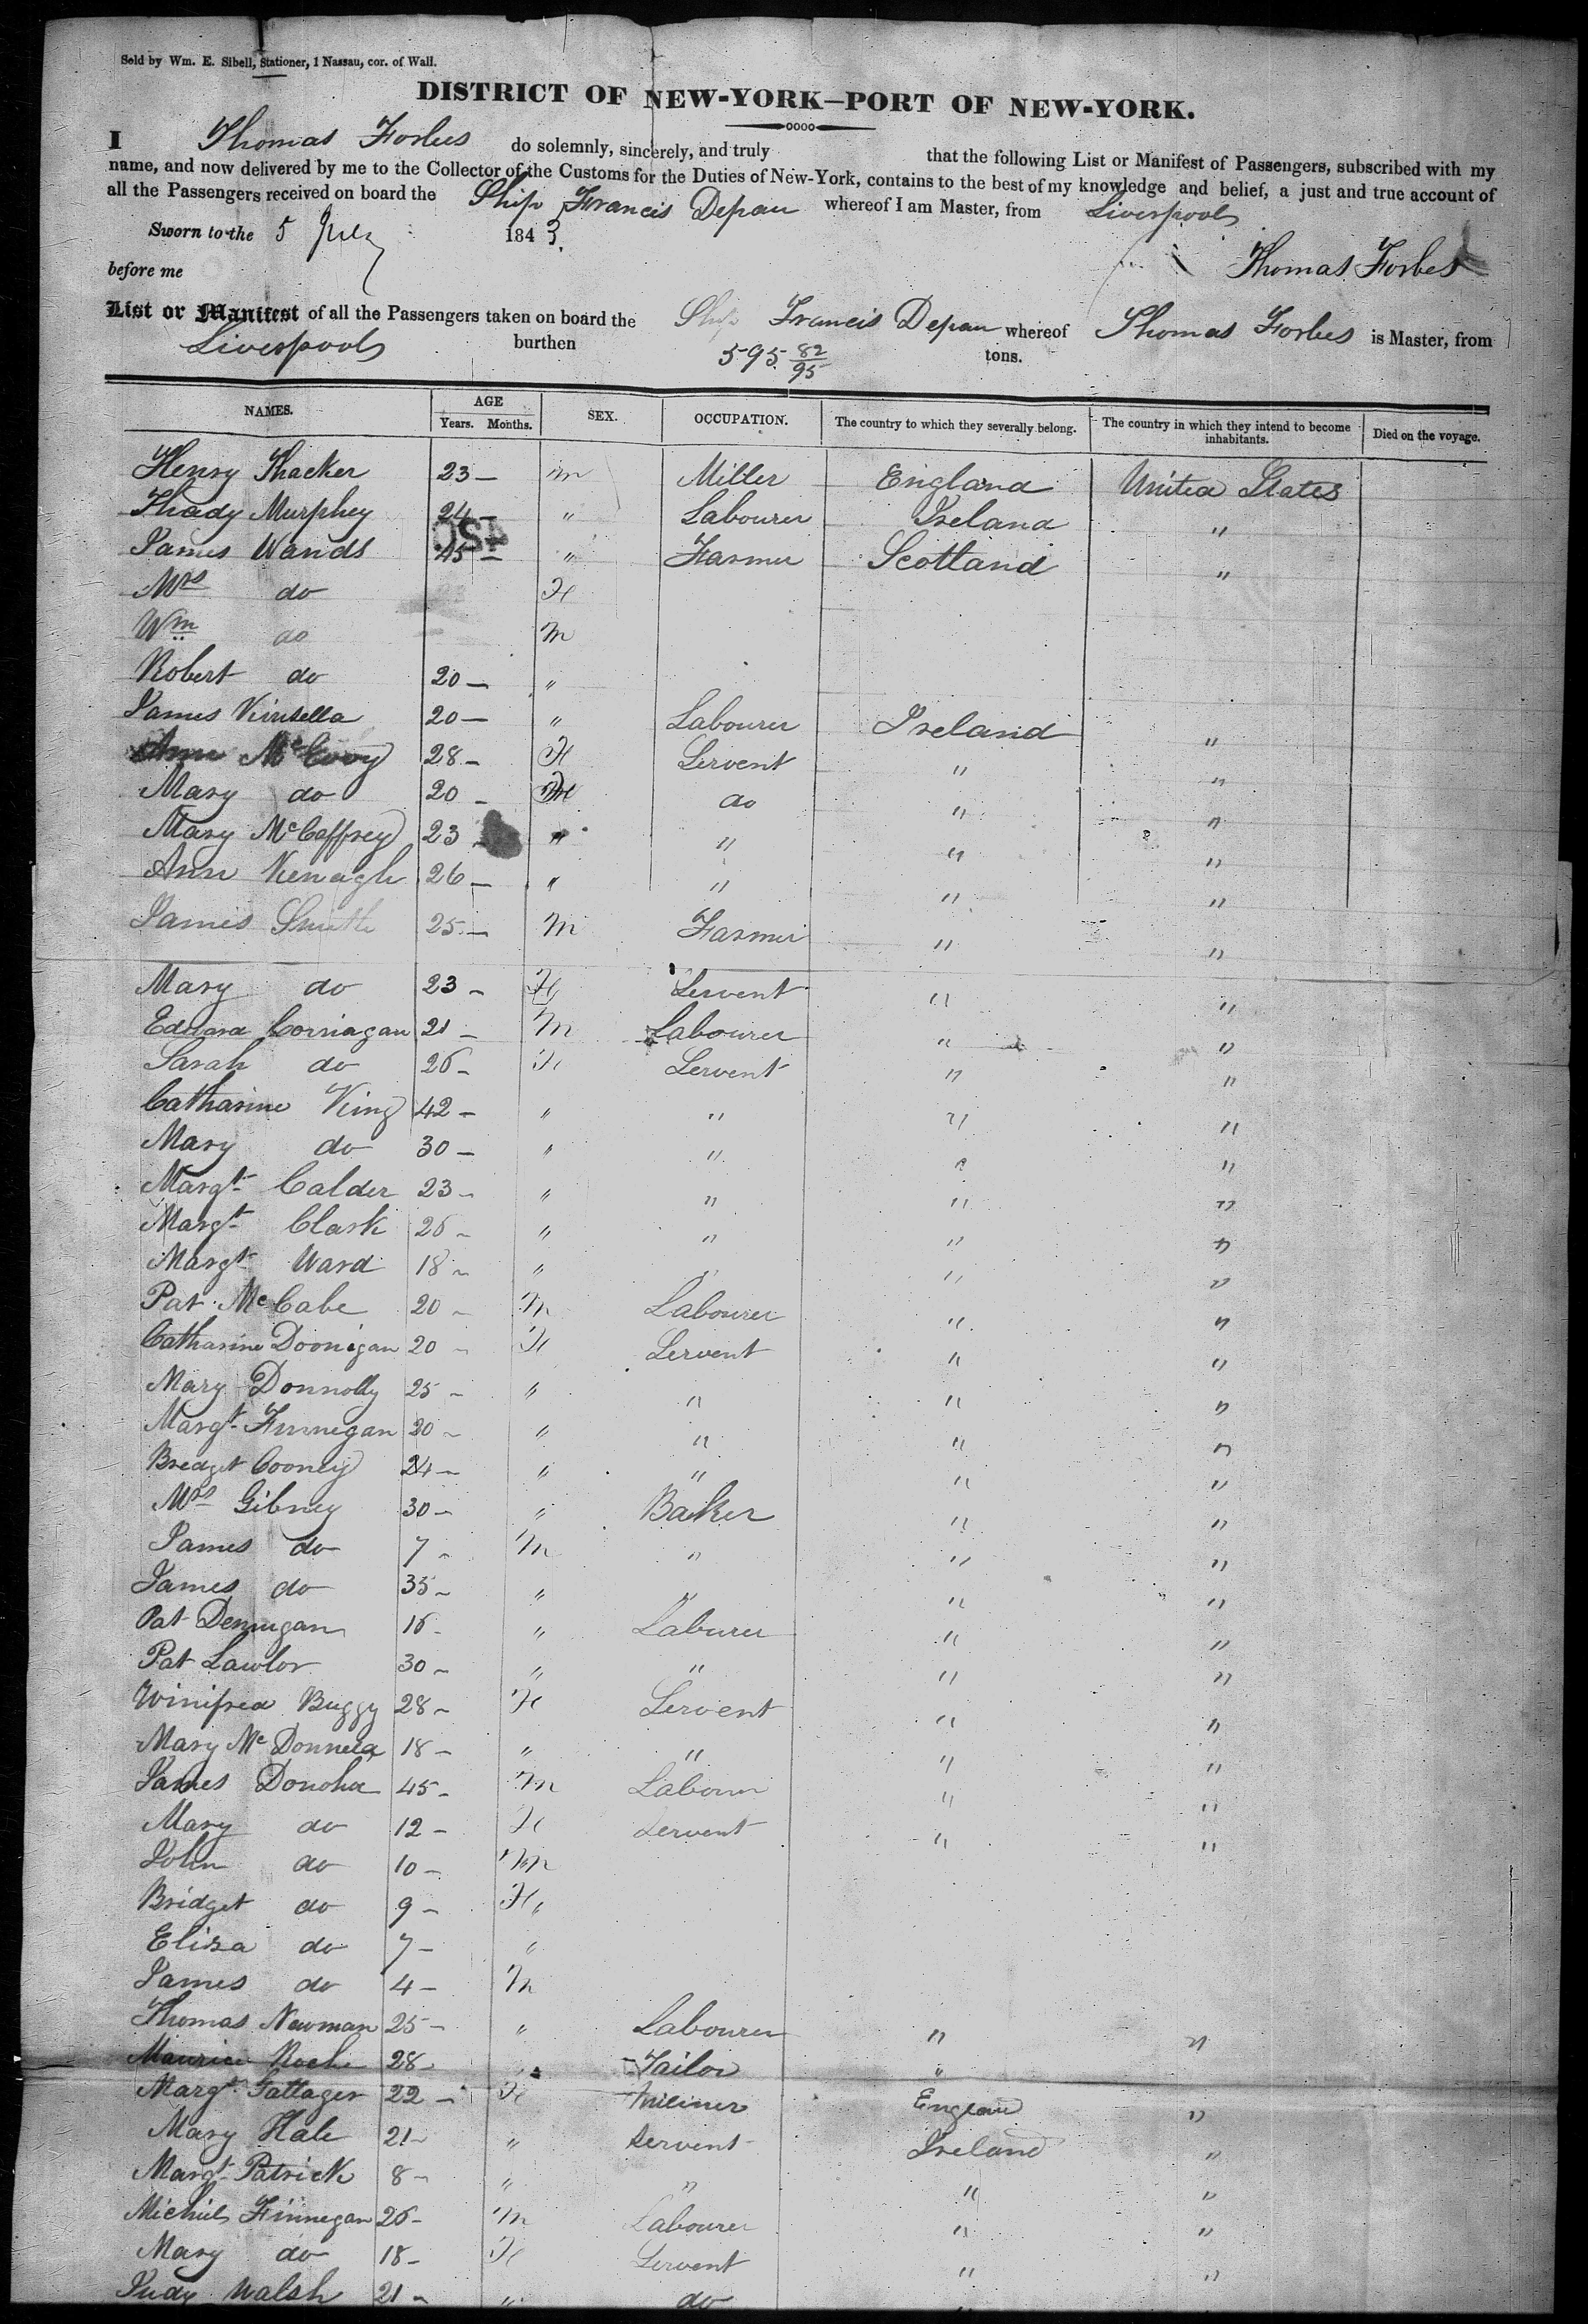 Sold by Wm. E. Sibell, Stationer, 1 Nassau, cor. of Wall.
DISTRICT OF NEW-YORK—PORT OF NEW-YORK.
I Thomas Forbes do solemnly, sincerely, and truly that the following List or Manifest of Passengers, subscribed with my
name, and now delivered by me to the Collector of the Customs for the Duties of New-York, contains to the best of my knowledge and belief, a just and true account of
all the Passengers received on board the Ship Francis Depau whereof I am Master, from Liverpool
Sworn to the 5 July 1843.
before me Thomas Forbes
List or Manifest of all the Passengers taken on board the Ship Francis Depau whereof Thomas Forbes is Master, from
Liverpool burthen 595 82/95 tons.
NAMES. AGE Years. Months. SEX. OCCUPATION. The country to which they severally belong. The country in which they intend to become inhabitants. Died on the voyage.
Henry Thacker 23 — m Miller England United States
Thady Murphey 24 — " Labourer Ireland "
James Wands 45 — " Farmer Scotland "
Mrs do F
Wm do m
Robert do 20 — "
James Kinsella 20 — " Labourer Ireland "
Ann McEvoy 28 — F Servent " "
Mary do 20 — F do " "
Mary McCaffrey 23 " " " "
Ann Kenagh 26 — " " " "
James Smith 25 — m Farmer " "
Mary do 23 — F Servent " "
Edward Corriagan 21 — m Labourer " "
Sarah do 26 — F Servent " "
Catharine King 42 — " " " "
Mary do 30 — " " " "
Margt Calder 23 — " " " "
Margt Clark 26 — " " " "
Margt Ward 18 — " " " "
Pat McCabe 20 — m Labourer " "
Catharine Doonigan 20 — F Servent " "
Mary Donnolly 25 — " " " "
Margt Finnegan 20 — " " " "
Bredget Cooney 24 — " " " "
Mrs Gibney 30 — " Baker " "
James do 7 — m " " "
James do 35 — " " " "
Pat Dennigan 16 — " Laburer " "
Pat Lawlor 30 — " " " "
Winifred Buggy 28 — F Servent " "
Mary McDonnell 18 — " " " "
James Donohu 45 — m Labourer " "
Mary do 12 — F Servent " "
John do 10 — m
Bridget do 9 — F
Eliza do 7 — "
James do 4 — m
Thomas Newman 25 — " Labourer " "
Maurice Roche 28 — " Tailor "
Margt Gallager 22 — F Miliner England "
Mary Hale 21 — " Servent Ireland "
Margt Patrick 8 — " " " "
Michiel Finnegan 26 — m Labourer " "
Mary do 18 — F Servent " "
Judy Walsh 21 — " do "